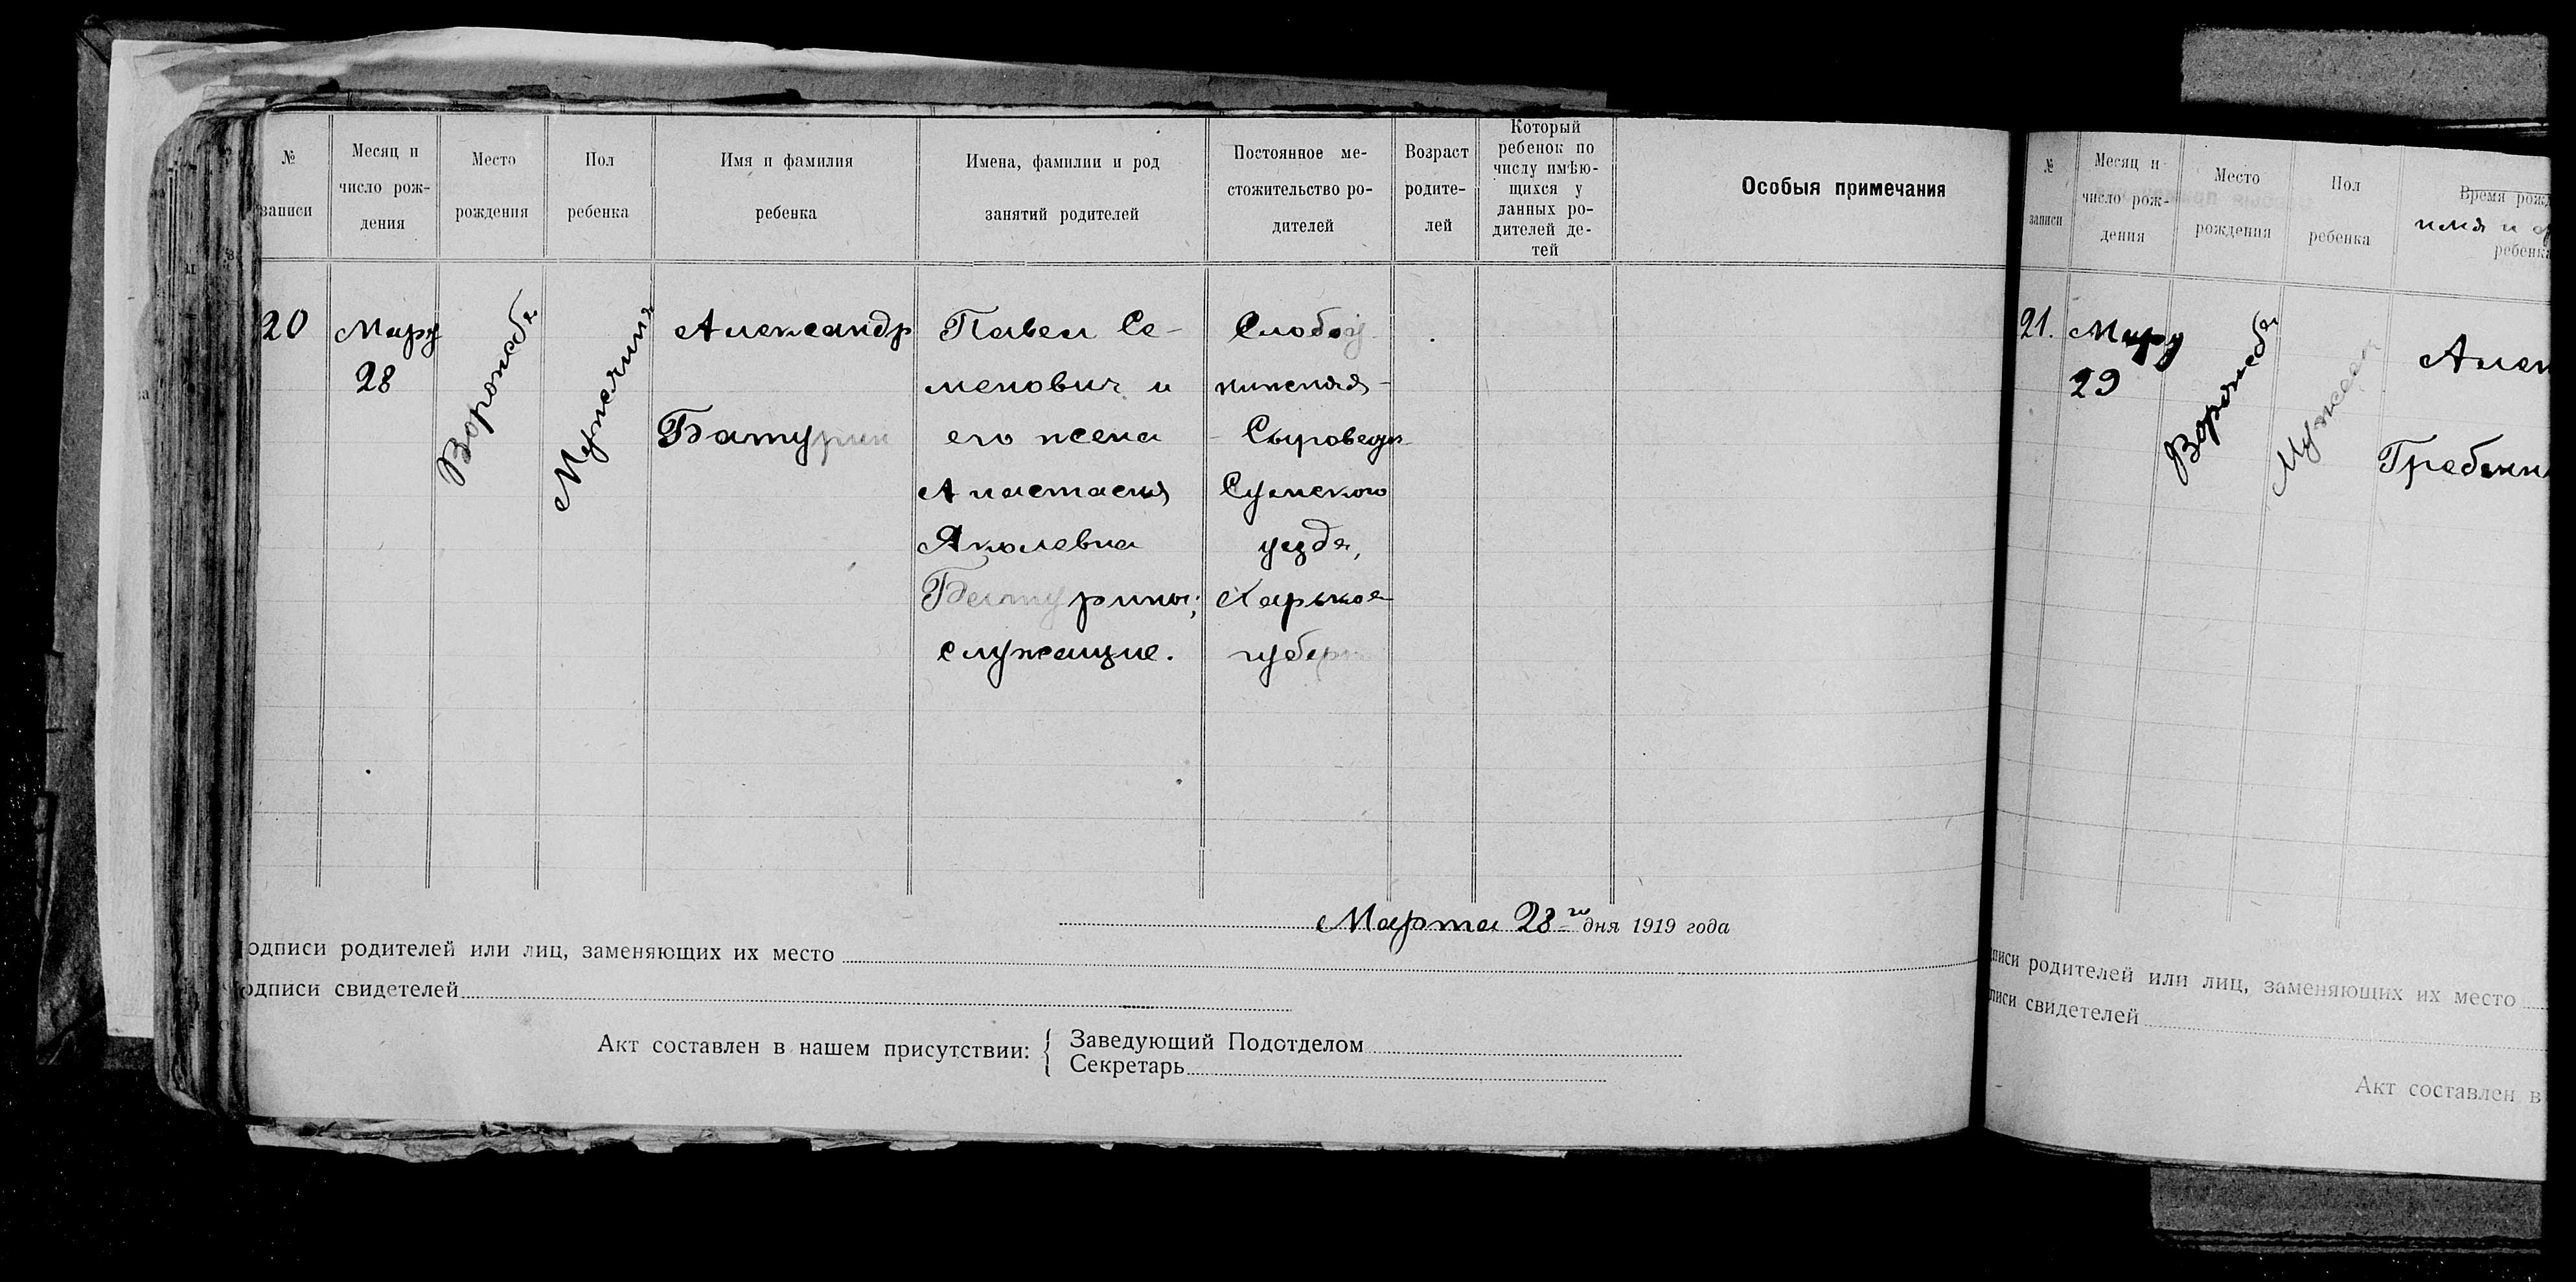 №
записи
Месяц и
число рож-
дения
Место
рождения
Пол
ребенка
Имя и фамилия
ребенка
Имена, фамилии и род
занятий родителей
Постоянное ме-
стожительство ро-
дителей
Возраст
родите-
лей
Который
ребенок по
числу имѣю-
щихся у
данных ро-
дителей де-
тей
Особыя примечания
20
Март
28
Ворожба
Мужчина
Александр
Батурин
Павел Се-
менович и
его жена
Анастасия
Яковлевна
Батурины;
служащие.
Нижняя-
Сумского
уезда,
Харьков
губерн
Марта 28го дня 1919 года
одписи родителей или лиц, заменяющих их место
одписи свидетелей
Акт составлен в нашем присутствии:
Заведующий Подотделом
Секретарь
№
записи
Месяц и
число рож-
дения
Место
рождения
Пол
ребенка
Время рожд
имя и ф
ребенка
21.
Март
29
Ворожба
Мужеск
Алек
Гребенн
писи родителей или лиц, заменяющих их место
писи свидетелей
Акт составлен в